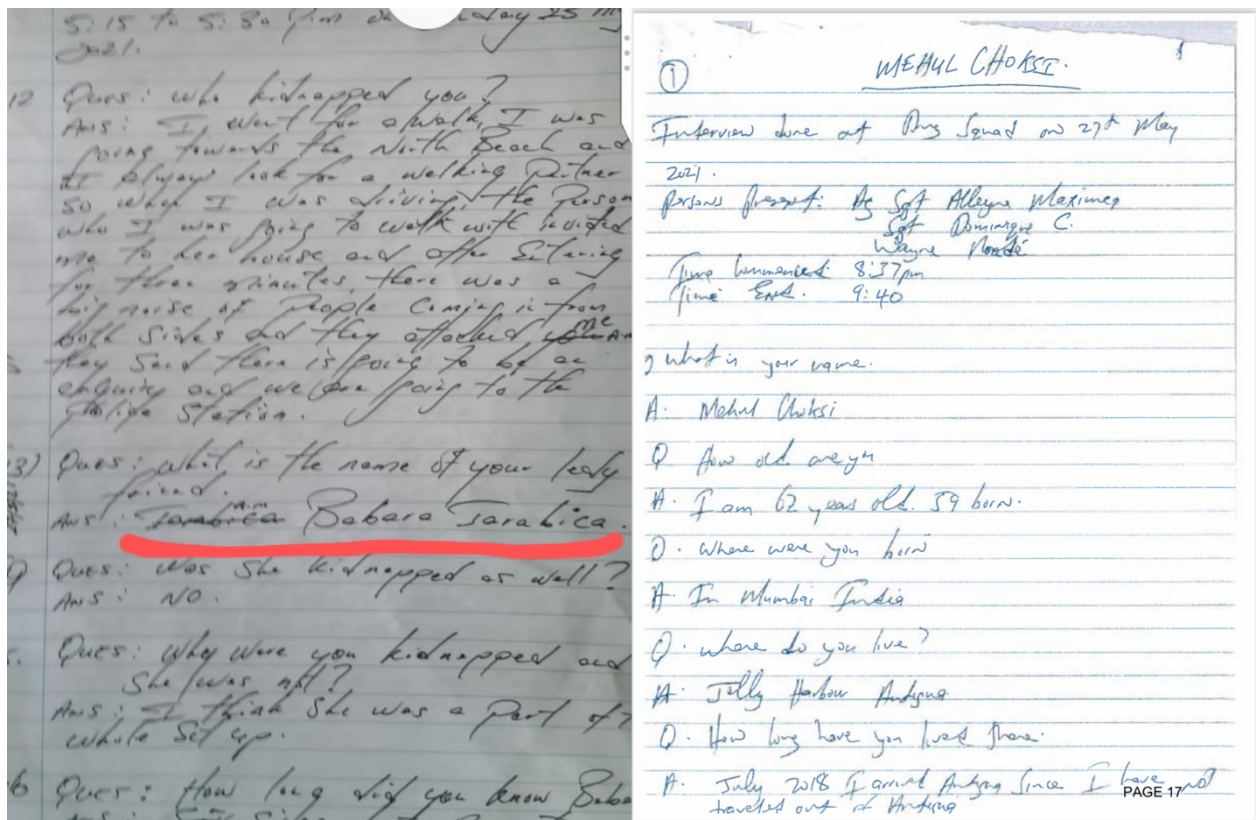 5:15 to 5:30 pm on day 25
2021.
12 Ques: who kidnapped you?
Ans: I went for a walk, I was
going towards the North Beach and
I always look for a walking partner
so when I was driving, the person
who I was going to walk with invited
me to her house and after entering
for three minutes, there was a
big noise of people coming in from
both sides and they attacked me
they said there is going to be an
enquiry and we are going to the
Police Station.
13) Ques: What is the name of your lady
friend.
Ans: Babara Jarabica.
Ques: Was she kidnapped as well?
Ans: NO.
Ques: Why were you kidnapped and
She was not?
Ans: I think She was a part of
whole Set up.
6 Ques: How long did you know Baba
1
MEHUL CHOKSI.
Interview done at Drug Squad on 27th May
2021.
Persons Present: Ag Sgt Alleyne Maximea
Sgt Dominique C.
Wayne
Time Commenced: 8:37pm
Time End. 9:40
Q What is your name.
A. Mehul Choksi
Q How old are you
A. I am 62 years old. 59 born.
Q. Where were you born
A. In Mumbai India
Q. Where do you live?
A. Jolly Harbour Antigua
Q. How long have you lived there.
A. July 2018 I arrived Antigua Since I have not
traveled out of Antigua
PAGE 17